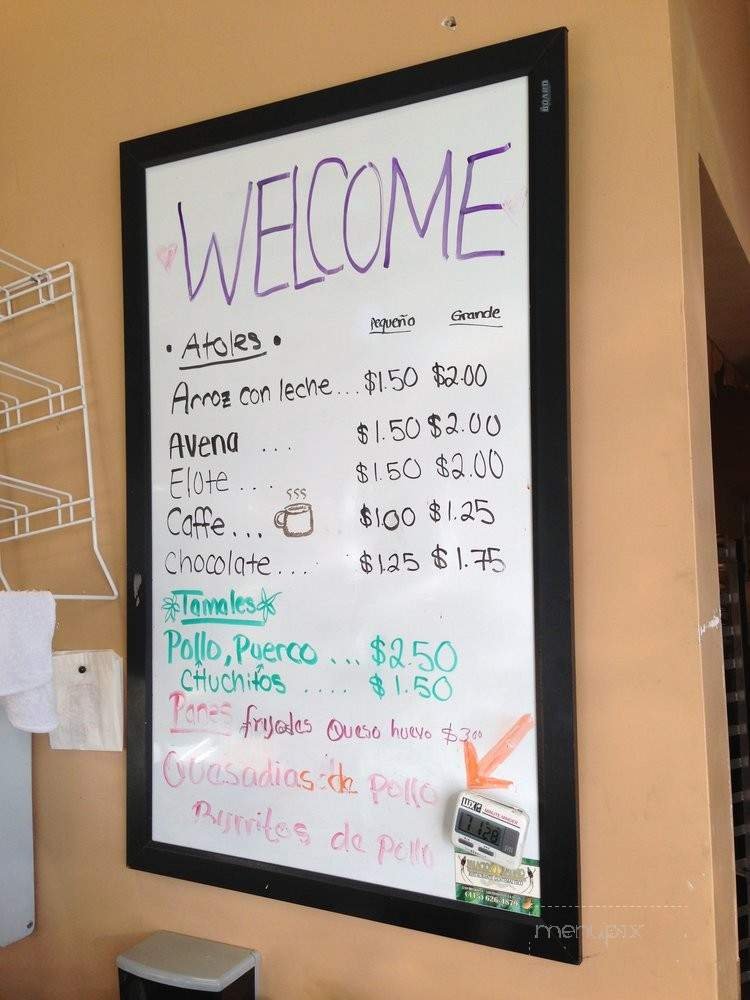 BOARD
WELCOME
Pequeño Grande
• Atoles •
Arroz con leche... $1.50 $2.00
Avena ... $1.50 $2.00
Elote ... $1.50 $2.00
Caffe... $1.00 $1.25
Chocolate... $1.25 $1.75
Tamales
Pollo, Puerco ... $2.50
CHuchitos .... $1.50
Panes frijoles Queso huevo $3.00
Quesadias de pollo
Burritos de pollo
LUX
MINUTE MINDER
(415) 626-4876
menupix